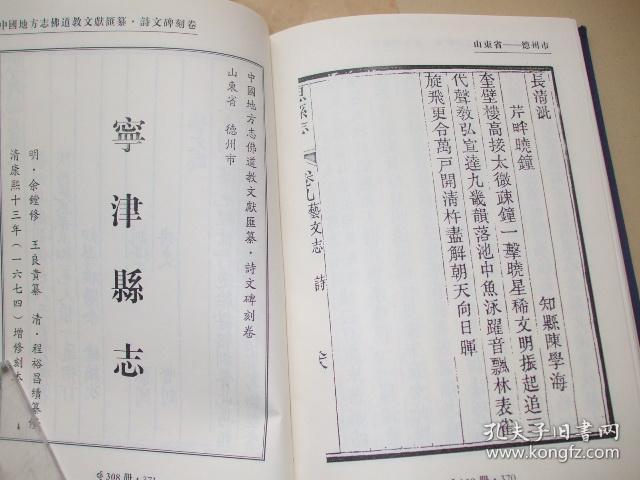 山東省——德州市
長清泚
知縣陳學海
芹畔曉鐘
奎壁樓高接太微疎鐘一擊曉星稀文明振起追三
代聲敎弘宣達九畿韻落池中魚泳躍音飄林表雀
旋飛更令萬戸開清杵盡解朝天向日暉
縣志
藝文志
詩
册·370
中國地方志佛道教文獻匯纂·詩文碑刻卷
中國地方志佛道教文獻匯纂·詩文碑刻卷
山東省 德州市
寧津縣志
明·余鏜修 王良貴纂 清·程裕昌續纂修
清康熙十三年(一六七四)增修刻本
308册·371
孔夫子旧书网
www.kongfz.com